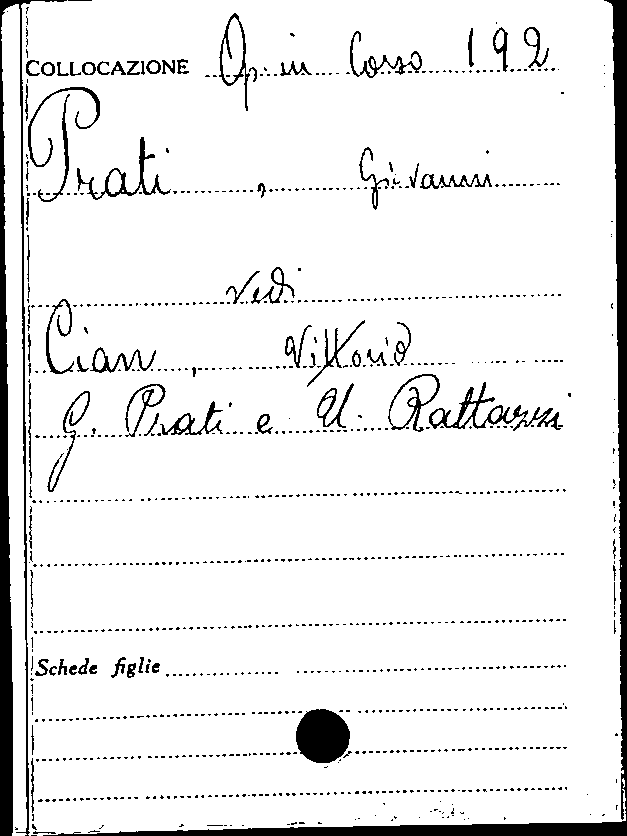 COLLOCAZIONE Op. in Corso 192
Prati, Giovanni
vedi
Cian, Vittorio
G. Prati e U. Rattazzi
Schede figlie